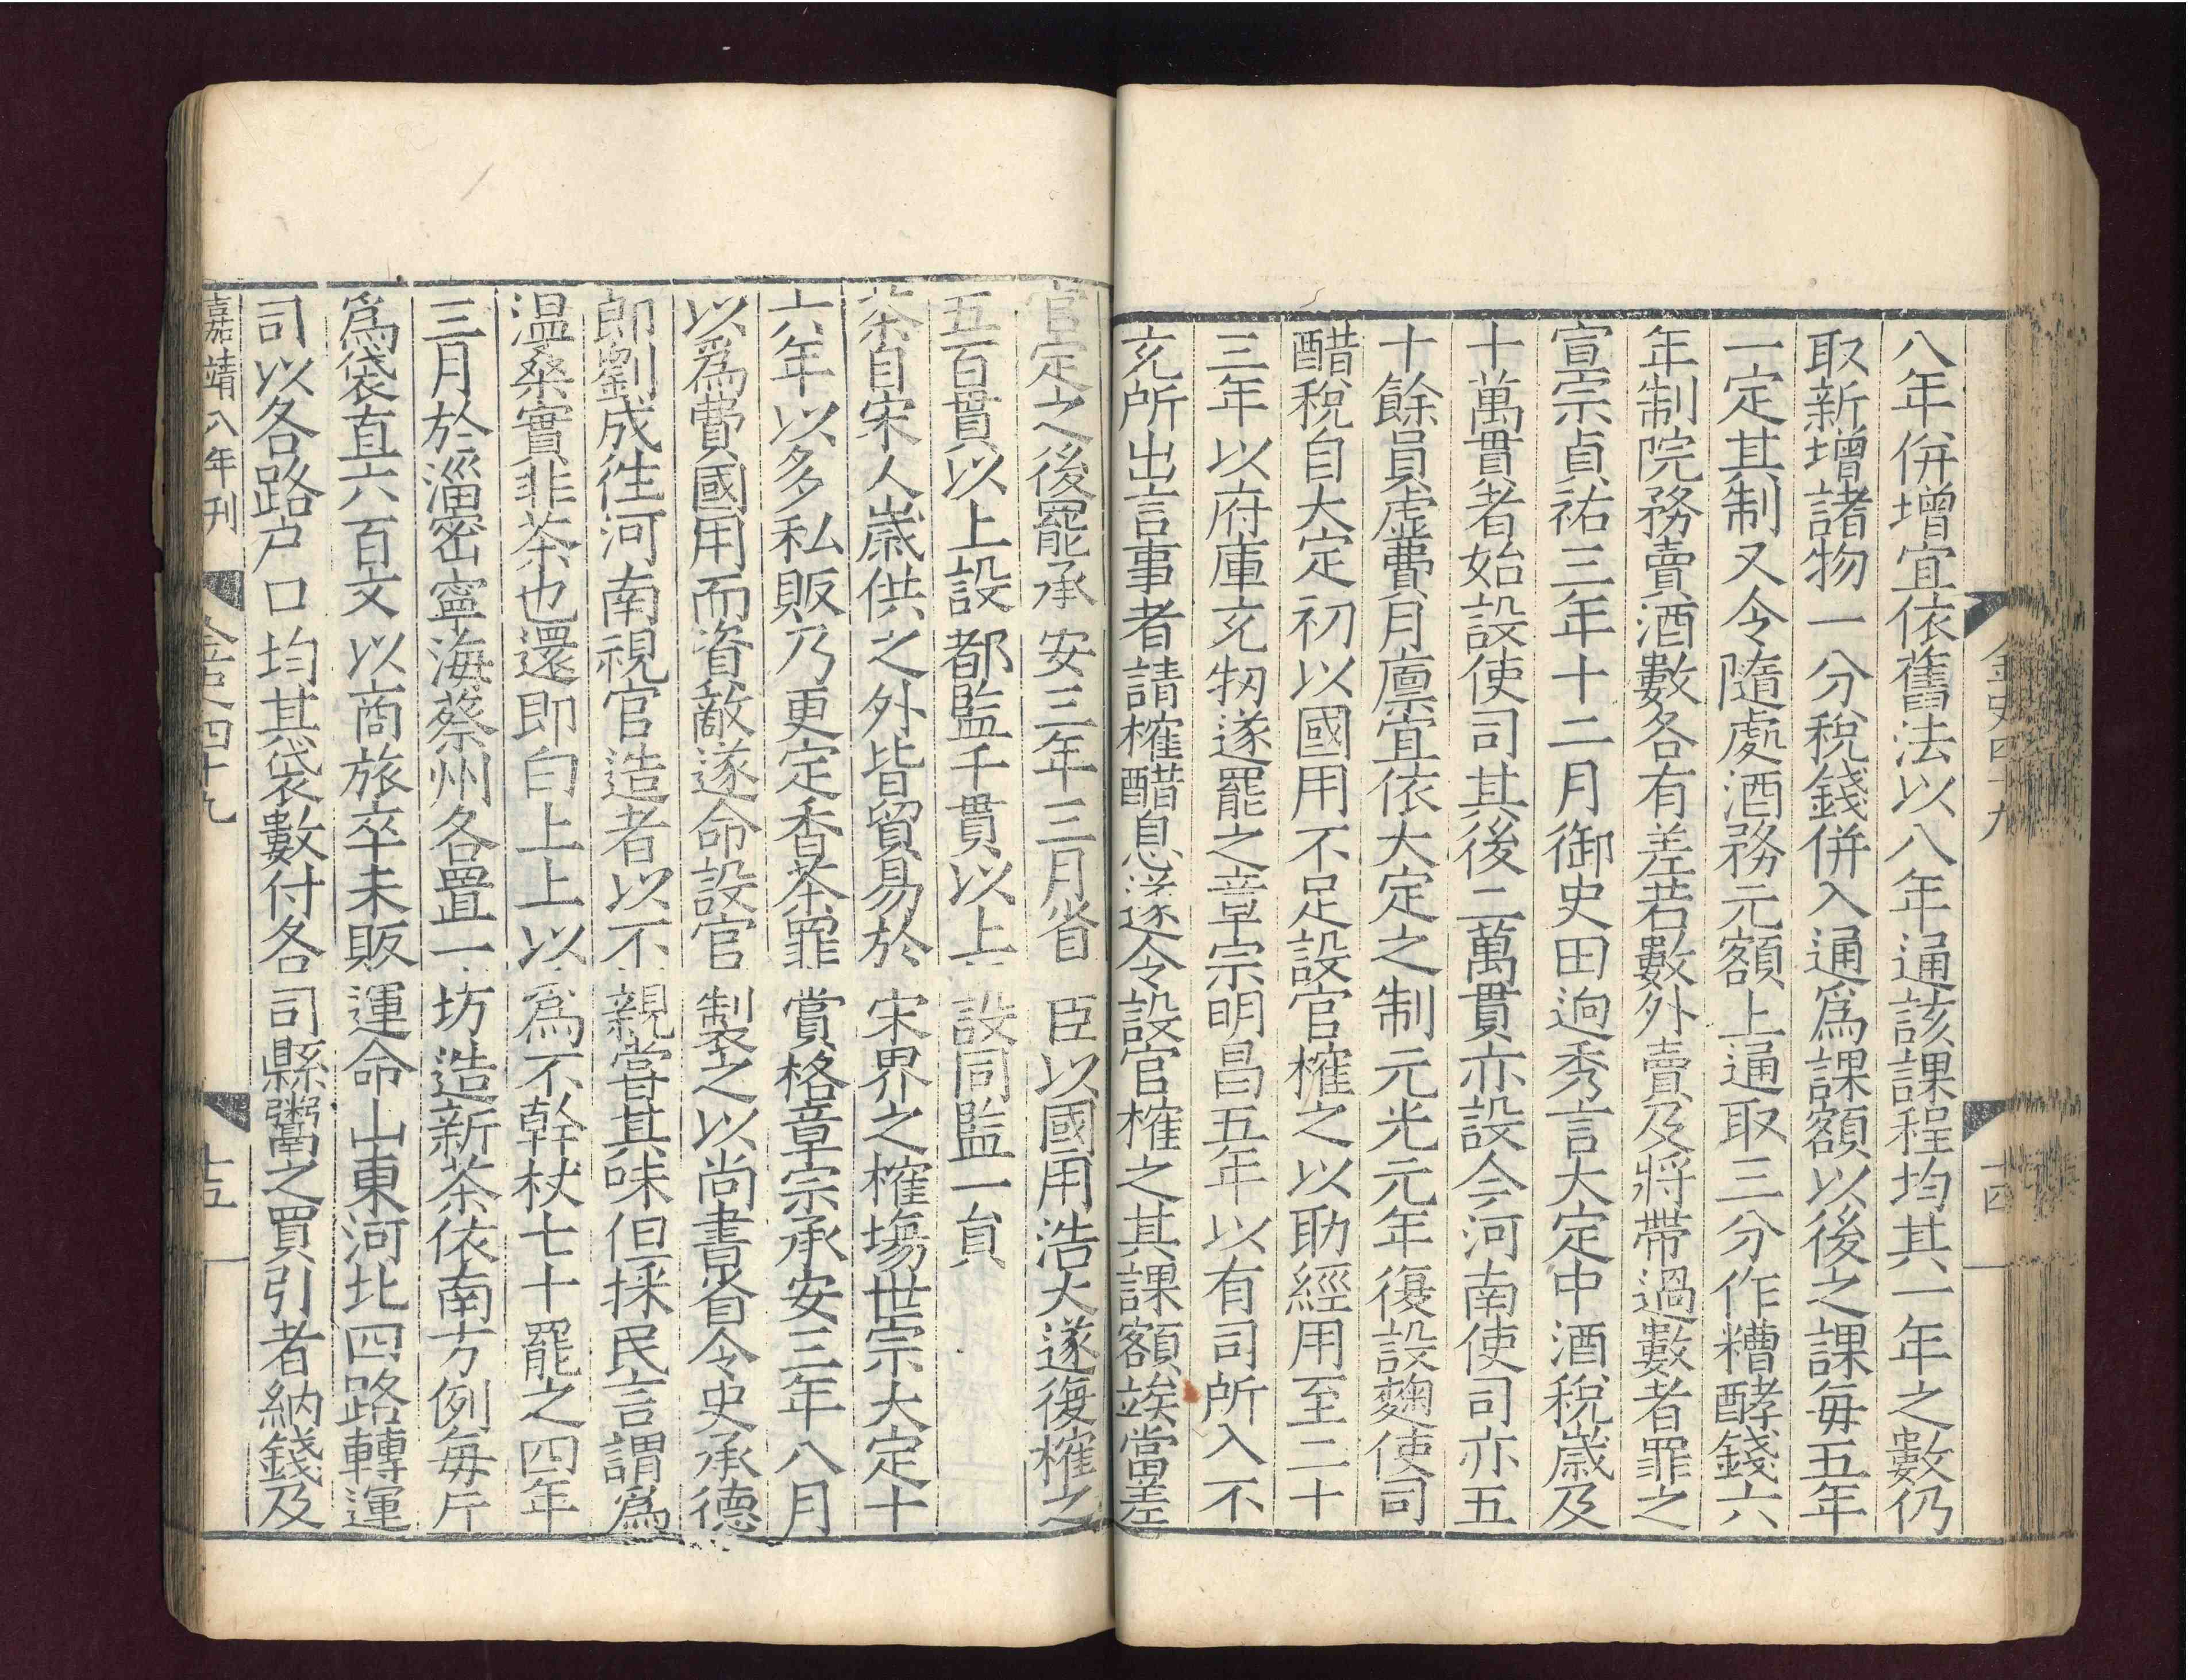 金史四十九
十四
八年併增宜依舊法以八年通該課程均其一年之數仍
取新增諸物一分稅錢併入通爲課額以後之課每五年
一定其制又令隨處酒務元額上通取三分作糟酵錢六
年制院務賣酒數各有差若數外賣及將帶過數者罪之
宣宗貞祐三年十二月御史田迥秀言大定中酒稅歲及
十萬貫者始設使司其後二萬貫亦設今河南使司亦五
十餘員虛費月廩宜依大定之制元光元年復設麴使司
醋稅自大定初以國用不足設官榷之以助經用至二十
三年以府庫充牣遂罷之章宗明昌五年以有司所入不
充所出言事者請榷醋息遂令設官榷之其課額竢當差
官定之後罷承安三年三月省臣以國用浩大遂復榷之
五百貫以上設都監千貫以上設同監一員
茶自宋人歲供之外皆貿易於宋界之榷場世宗大定十
六年以多私販乃更定香茶罪賞格章宗承安三年八月
以爲費國用而資敵遂命設官製之以尚書省令史承德
郎劉成徃河南視官造者以不親嘗其味但採民言謂爲
温桑實非茶也還即白上上以爲不幹杖七十罷之四年
三月於淄密寧海蔡州各置一坊造新茶依南方例每斤
爲袋直六百文以商旅卒未販運命山東河北四路轉運
司以各路户口均其袋數付各司縣鬻之買引者納錢及
嘉靖八年刊
金史四十九
十五